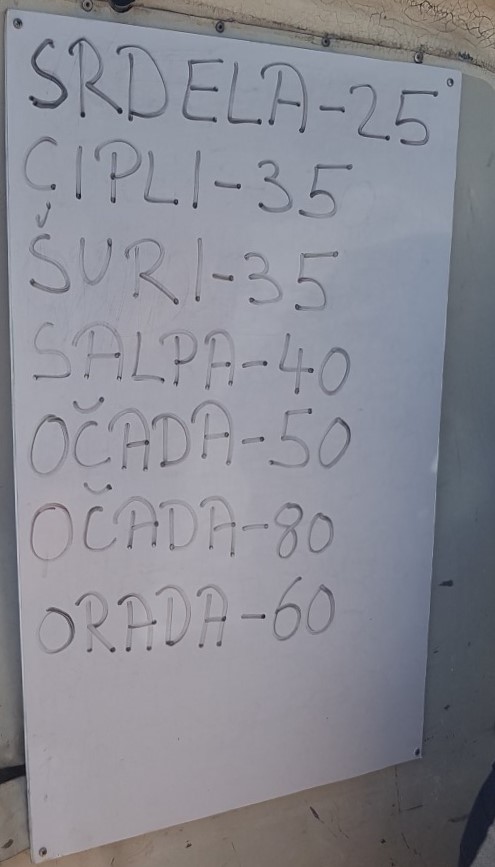 SRDELA-25
CIPLI-35
ŠURI-35
SALPA-40
OČADA-50
OČADA-80
ORADA-60